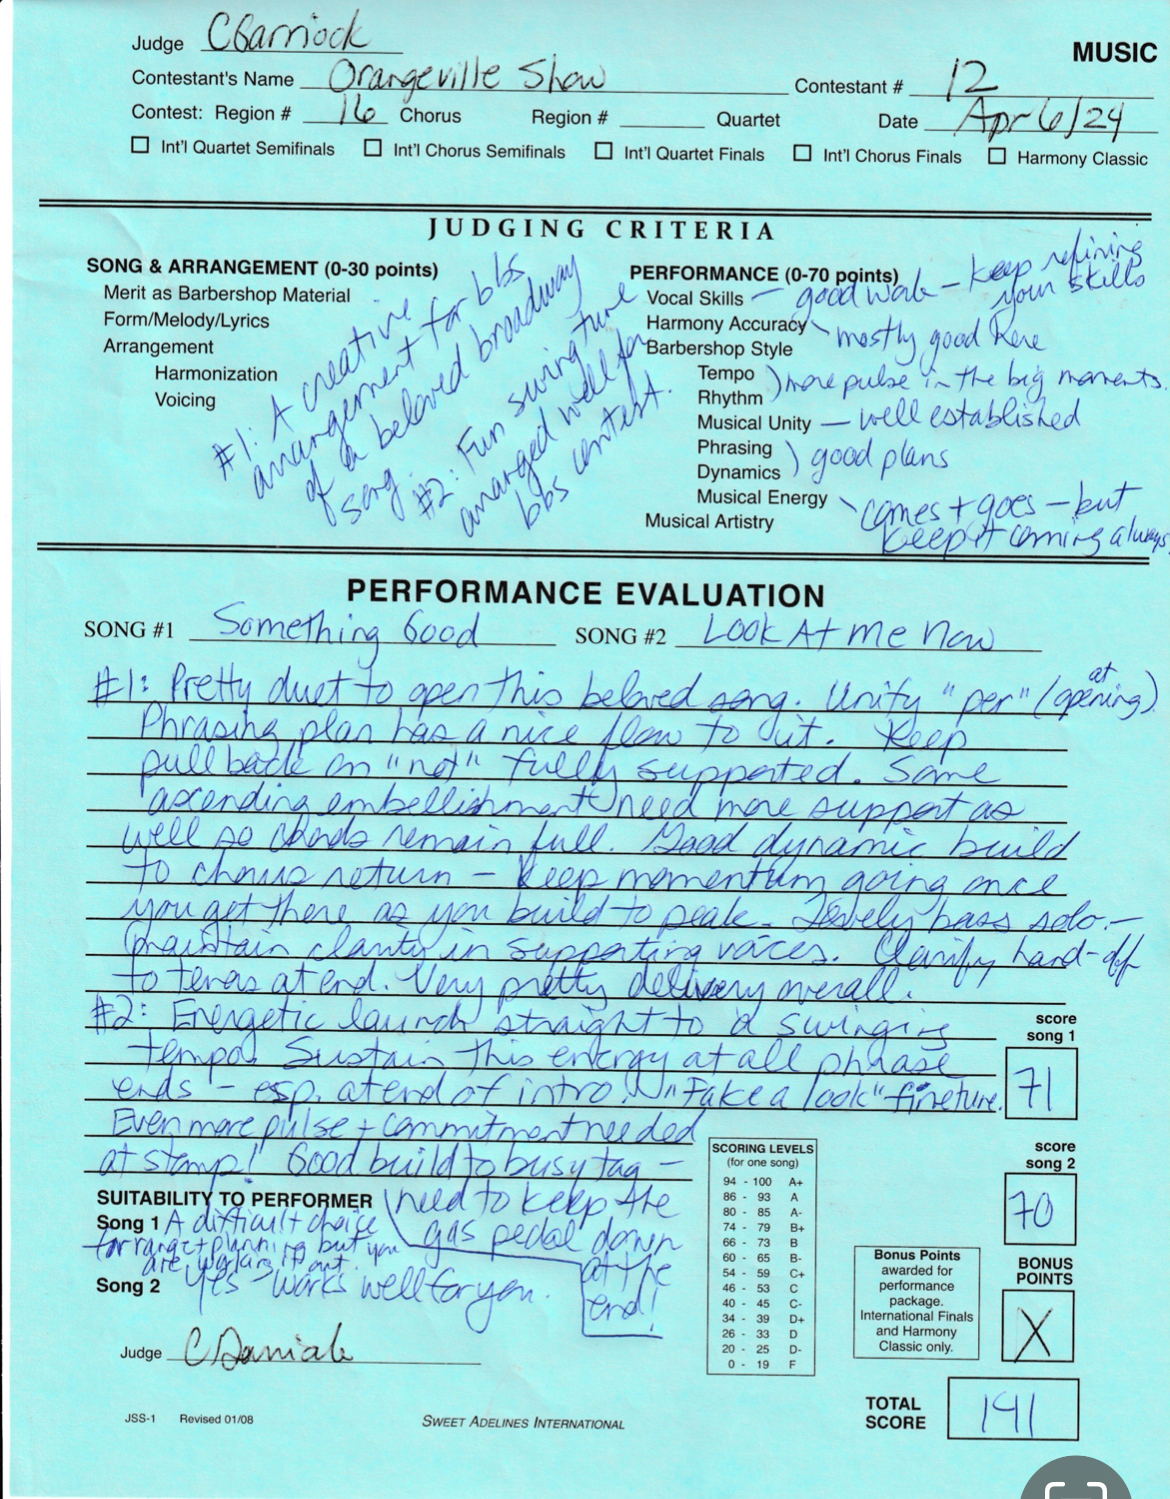 Judge
MUSIC
Contestant's Name Orangeville Show Contestant # 12
Contest: Region # 16 Chorus Region # Quartet Date Apr 6/24
Int'l Quartet Semifinals Int'l Chorus Semifinals Int'l Quartet Finals Int'l Chorus Finals Harmony Classic
JUDGING CRITERIA
SONG & ARRANGEMENT (0-30 points)
Merit as Barbershop Material
Form/Melody/Lyrics
Arrangement
Harmonization
Voicing
#1: A creative
arrangement for bbs
of a beloved broadway
song.
#2: Fun swing tune
arranged well for
bbs contest.
PERFORMANCE (0-70 points)
Vocal Skills – good work – keep refining
your skills
Harmony Accuracy mostly good here
Barbershop Style
Tempo
Rhythm ) more pulse in the big moments.
Musical Unity – well established
Phrasing
Dynamics ) good plans
Musical Energy comes + goes – but
keep it coming always
Musical Artistry
PERFORMANCE EVALUATION
SONG #1 Something Good SONG #2 Look At Me Now
#1: Pretty duet to open this beloved song. Unify "per" (at opening)
Phrasing plan has a nice flow to it. Keep
pull back on "not" fully supported. Some
ascending embellishments need more support as
well so chords remain full. Good dynamic build
to chorus return – keep momentum going once
you get there as you build to peak. Lovely bass solo –
maintain clarity in supporting voices. Clarify hand-off
to tenors at end. Very pretty delivery overall.
#2: Energetic launch straight to a swinging
tempo! Sustain this energy at all phrase
ends – esp. at end of intro. "Take a look"
Even more pulse + commitment needed
at stomp! Good build to busy tag –
need to keep the
gas pedal down
at the
end!
SUITABILITY TO PERFORMER
Song 1 A difficult choice
for range + planning but you
are working it out.
Song 2 Yes – works well for you.
Judge
score
song 1
71
score
song 2
70
SCORING LEVELS
(for one song)
94 - 100 A+
86 - 93 A
80 - 85 A-
74 - 79 B+
66 - 73 B
60 - 65 B-
54 - 59 C+
46 - 53 C
40 - 45 C-
34 - 39 D+
26 - 33 D
20 - 25 D-
0 - 19 F
Bonus Points
awarded for
performance
package.
International Finals
and Harmony
Classic only.
BONUS
POINTS
X
TOTAL
SCORE
141
JSS-1 Revised 01/08 SWEET ADELINES INTERNATIONAL